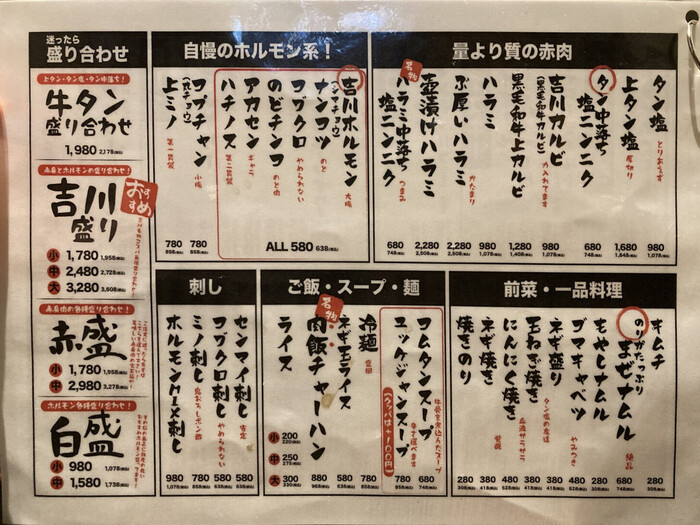 迷ったら
盛り合わせ
上タン・タン塩・タン中落ち!
牛タン
盛り合わせ
1,980 2,178(税込)
赤身とホルモンの盛り合わせ!
吉川
盛り
おすすめ
小 1,780 1,958(税込)
中 2,480 2,728(税込)
大 3,280 3,608(税込)
赤身肉の各種盛り合わせ!
赤盛
小 1,780 1,958(税込)
中 2,980 3,278(税込)
ホルモン各種盛り合わせ!
白盛
小 980 1,078(税込)
中 1,580 1,738(税込)
自慢のホルモン系!
吉川ホルモン
(シマチョウ)
大腸
ナンコツ
のど
コブクロ
やめられない
のどチンコ
のど肉
アカセン
ギャラ
ハチノス
第二胃袋
ALL 580 638(税込)
コブチャン
(丸チョウ)
小腸
780
858(税込)
上ミノ
第一胃袋
780
858(税込)
量より質の赤肉
タン塩
とりあえず
980
1,078(税込)
上タン塩
厚切り
1,680
1,848(税込)
タン中落ち
塩ニンニク
680
748(税込)
吉川カルビ
(黒毛和牛カルビ)
力入れてます
980
1,078(税込)
黒毛和牛上カルビ
1,280
1,408(税込)
ハラミ
980
1,078(税込)
ぶ厚いハラミ
かたまり
2,280
2,508(税込)
名物
壺漬けハラミ
2,280
2,508(税込)
ハラミ中落ち
塩ニンニク
つまみ
680
748(税込)
刺し
センマイ刺し
580
638(税込)
コブクロ刺し
やめられない
580
638(税込)
ミノ刺し
鬼おろしポン酢
780
858(税込)
ホルモンMIX刺し
980
1,078(税込)
ご飯・スープ・麺
コムタンスープ
牛骨を煮込んだスープ
780
858(税込)
ユッケジャンスープ
辛さ選べます
(クッパは+100円)
780
858(税込)
冷麺
780
858(税込)
ネギ玉ライス
580
638(税込)
名物
肉飯チャーハン
880
968(税込)
ライス
小 200
220(税込)
中 250
275(税込)
大 300
330(税込)
前菜・一品料理
キムチ
280
308(税込)
のりがたっぷり
のりまぜナムル
絶品
680
748(税込)
もやしナムル
280
308(税込)
ゴマキャベツ
やみつき
480
528(税込)
ネギ盛り
タン塩の友達
380
玉ねぎ焼き
血液サラサラ
380
にんにく焼き
480
ネギ焼き
380
焼きのり
280
308(税込)